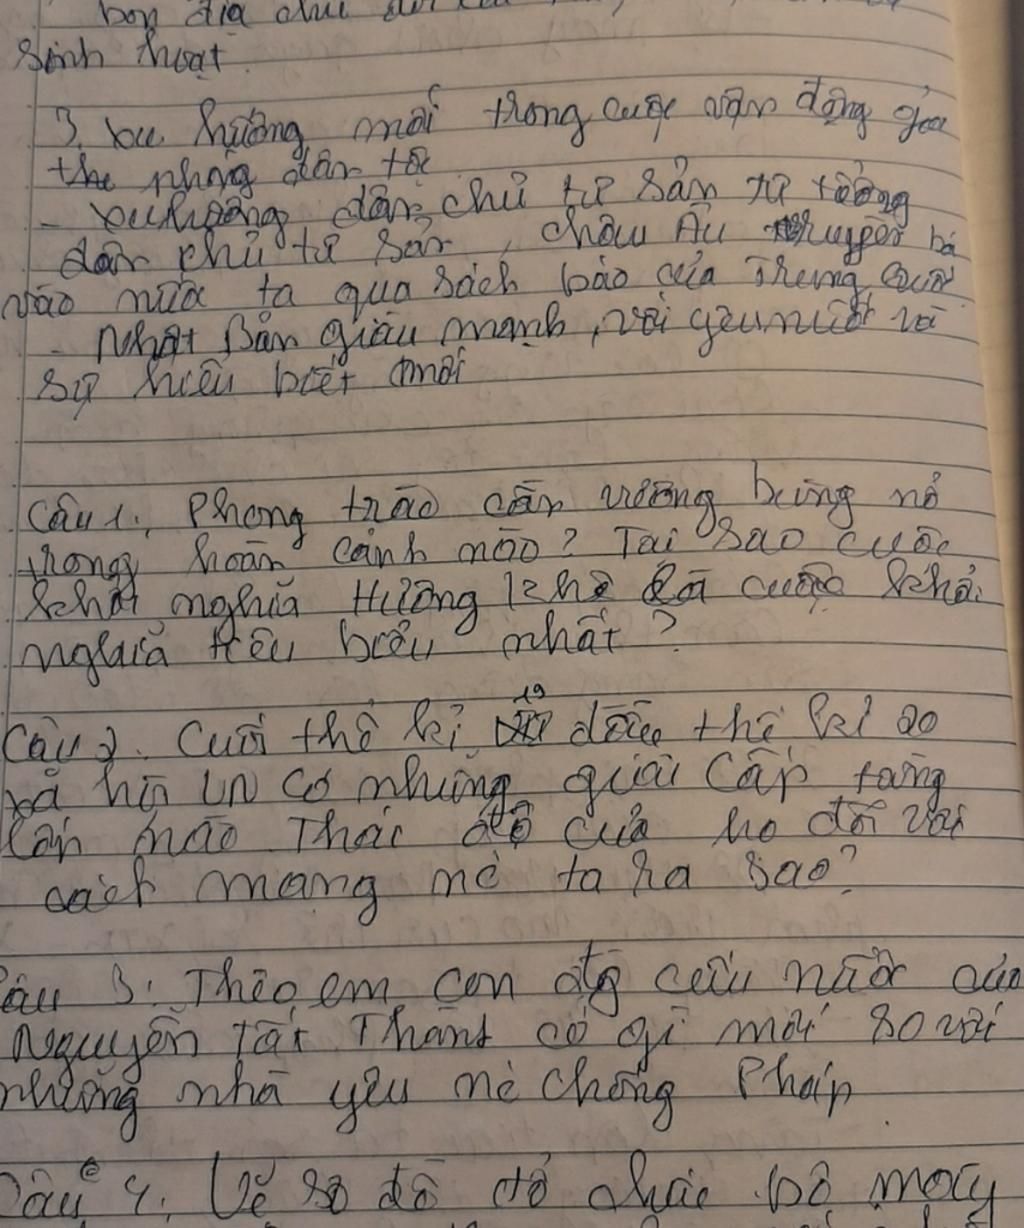 bọn địa chủ
Sinh hoạt
3. xu hướng mới trong cuộc vận động giải
the phóng dân tộc
- xu hướng dân chủ tư sản từ tưởng
dân chủ tư sản, châu Âu truyền bá
vào nước ta qua sách báo của Trung Quốc
- Nhật Bản giàu mạnh, với yêu nước và
sự hiểu biết mới
Câu 1. Phong trào cần vương bùng nổ
trong hoàn cảnh nào? Tại sao cuộc
khởi nghĩa Hương Khê là cuộc khởi
nghĩa tiêu biểu nhất?
Câu 2. Cuối thế kỉ 19 đầu thế kỉ 20
xã hội VN có những giai cấp tầng
lớp nào Thái độ của họ đối với
cách mạng nc ta ra sao?
Câu 3: Theo em con đg cứu nước của
Nguyễn Tất Thành có gì mới so với
những nhà yêu nc chống Pháp
Câu 4. Vẽ sơ đồ tổ chức bộ máy